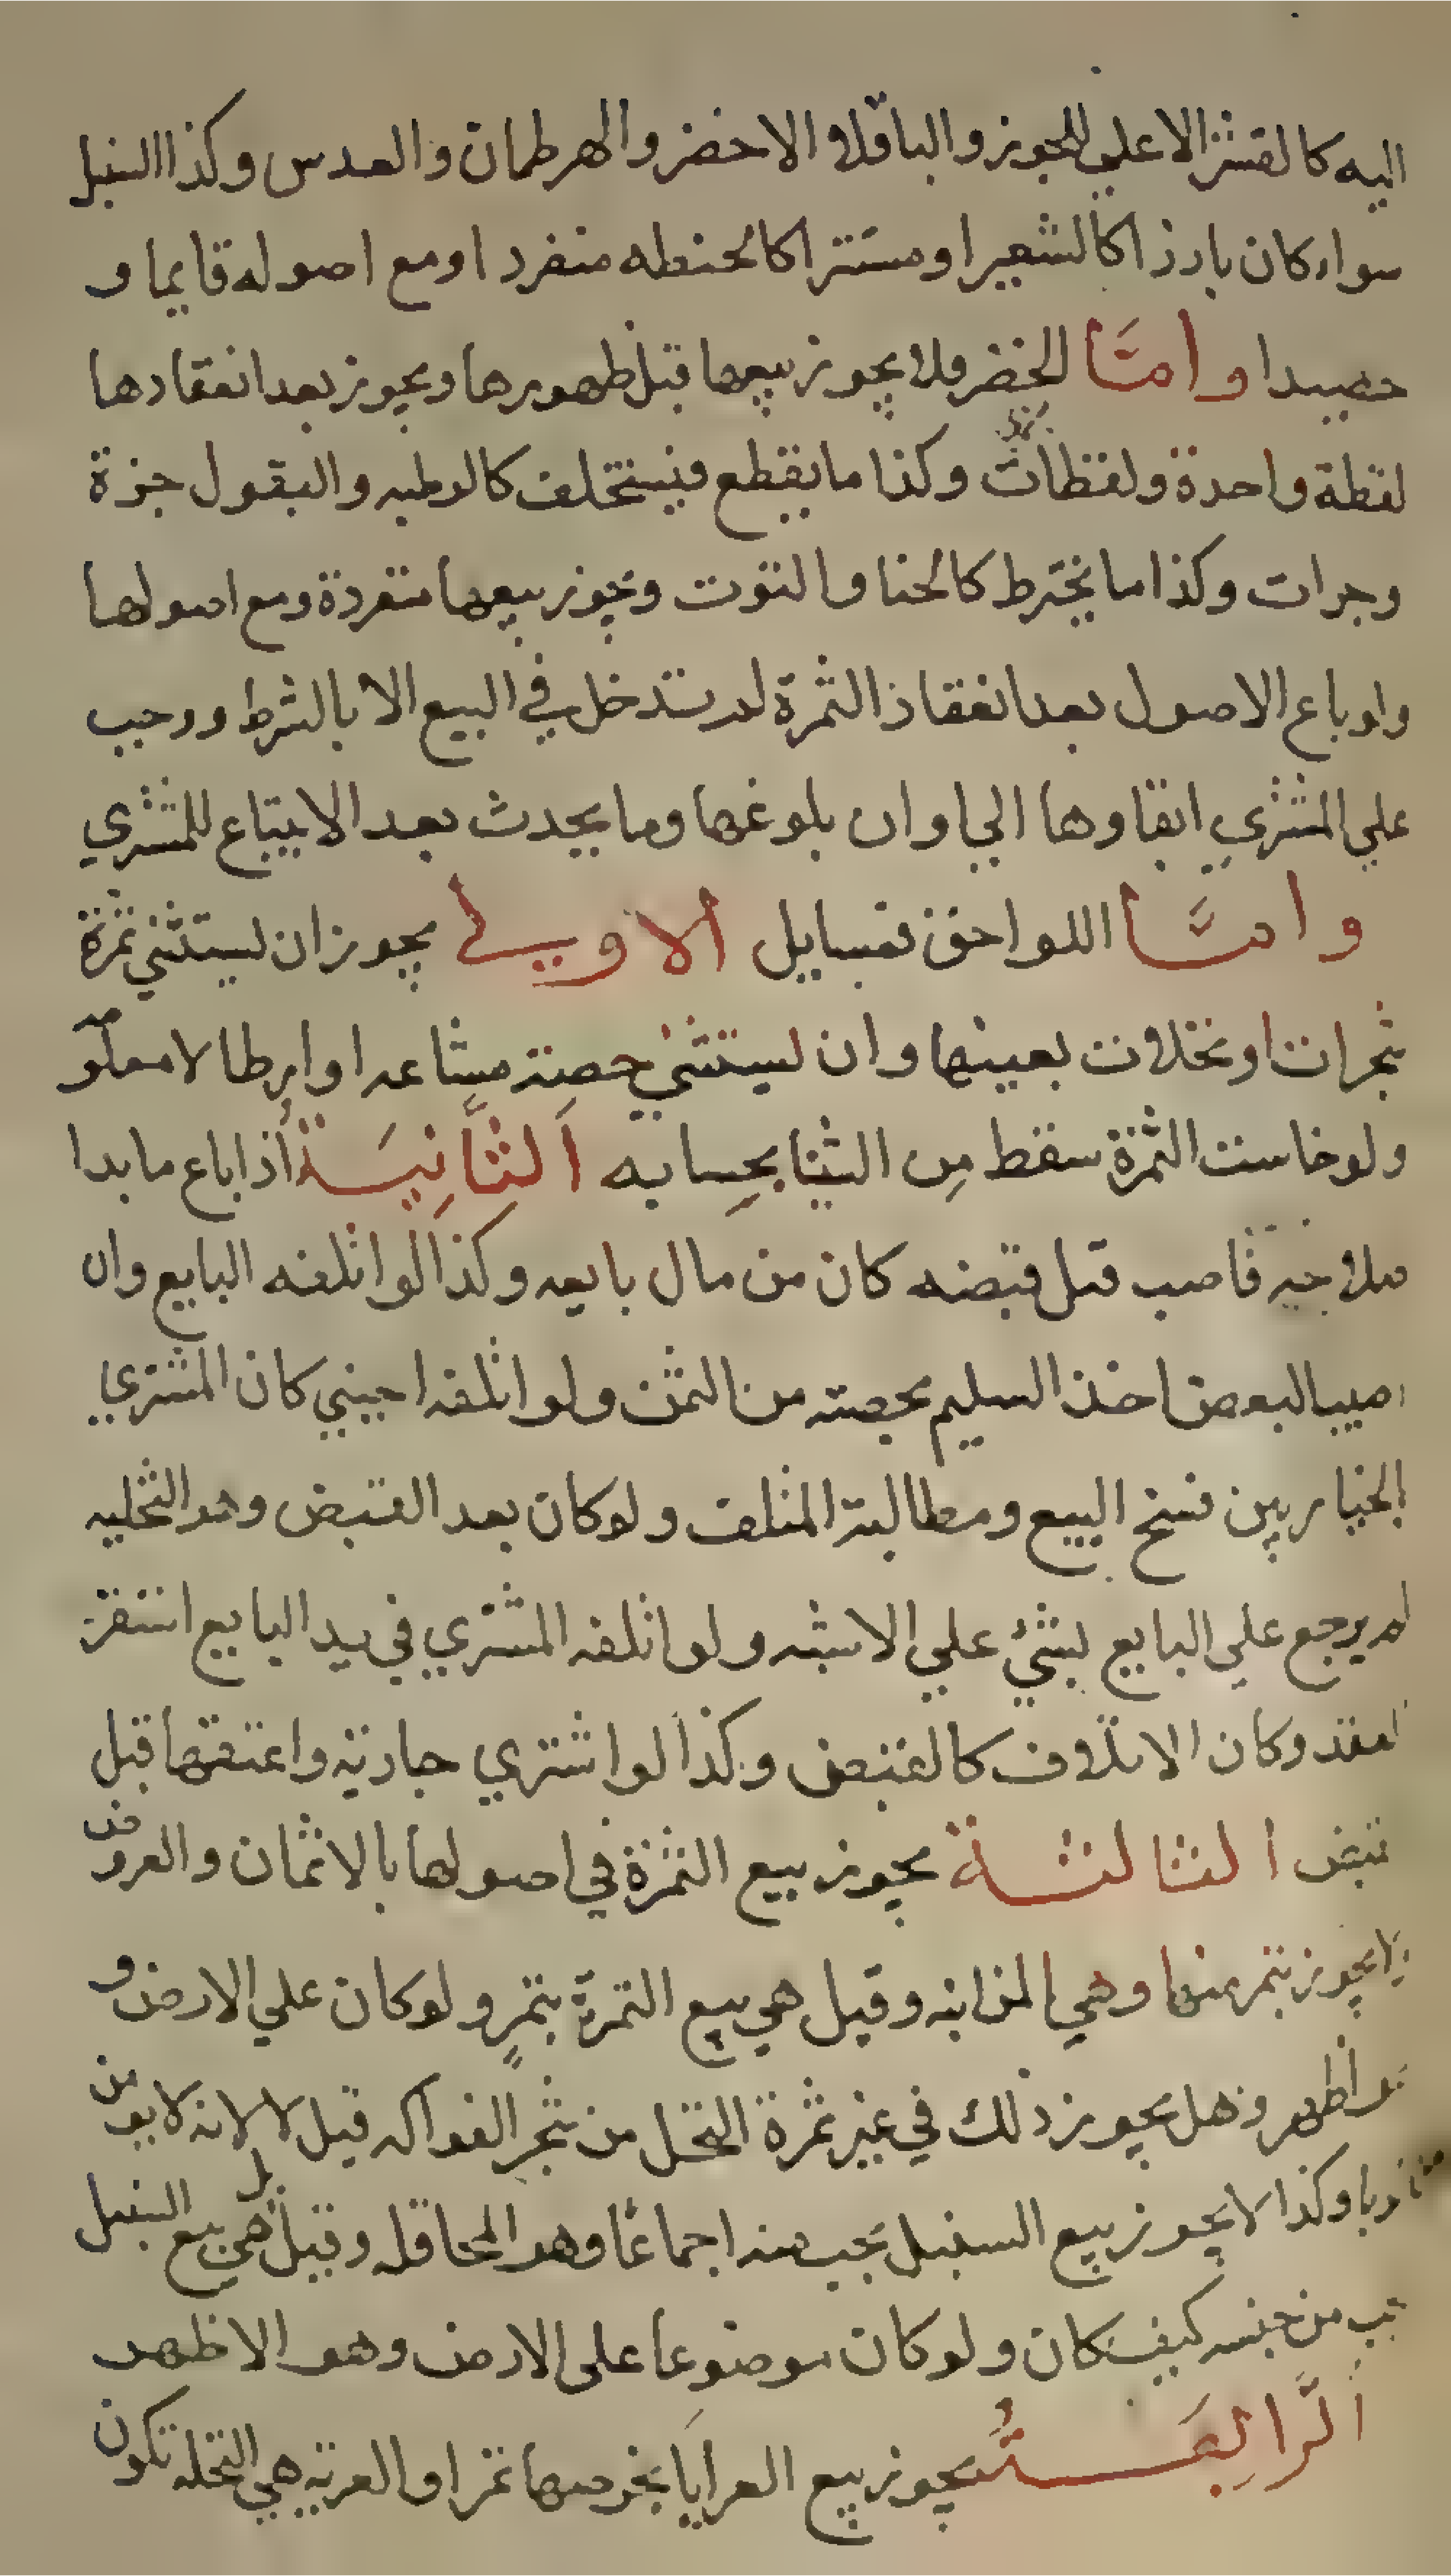 اليه كالقشر الاعلي للجوز والباقلا الاخضر والهرطمان والعدس وكذا السنبل
سواء كان بارزا كالشعير او مستترا كالحنطه منفردا ومع اصوله قايما و
حصيدا واما الخضر فلا يجوز بيعها قبل ظهورها ويجوز بعد انعقادها
لقطة واحدة ولقطات وكذا ما يقطع فيستخلف كالرطبه والبقول جزة
وجزات وكذا ما يخترط كالحنا والتوت ويجوز بيعها منفردة ومع اصولها
ولو باع الاصول بعد انعقاد الثمرة لم تدخل في البيع الا بالشرط ووجب
علي المشتري ابقاوها الي اوان بلوغها وما يحدث بعد الابتياع للمشتري
واما اللواحق فمسايل الاولي يجوز ان يستثني ثمرة
ثجرات او نخلات بعينها وان يستثني حصة مشاعه او ارطالا معلومه
ولو خاست الثمرة سقط من الثنيا بحسابه الثانية اذا باع ما بدا
صلاحه فاصيب قبل قبضه كان من مال بايعه وكذا لو اتلفه البايع وان
اصيب البعض اخذ السليم بحصته من الثمن ولو اتلفه اجنبي كان المشتري
بالخيار بين فسخ البيع ومطالبة المتلف ولو كان بعد القبض وهو التخليه
لم يرجع علي البايع بشيء علي الاشبه ولو اتلفه المشتري في يد البايع استقر
العقد وكان الاتلاف كالقبض وكذا لو اشتري جارية واعتقها قبل
قبض الثالثة يجوز بيع الثمرة في اصولها بالاثمان والعروض
ولا يجوز بثمر منها وهي المزابنه وقيل هي بيع الثمرة بتمر ولو كان علي الارض و
هو اظهر وهل يجوز ذلك في غير ثمرة النخل من شجر الفواكه قيل لا لانه لا يومن
من الربا وكذا لا يجوز بيع السنبل بحب منه اجماعا وهو المحاقله وقيل بل هي بيع السنبل
بحب من جنسه كيف كان ولو كان موضوعا علي الارض وهو الاظهر
الرابعة يجوز بيع العرايا بخرصها تمرا والعرية هي النخله تكون